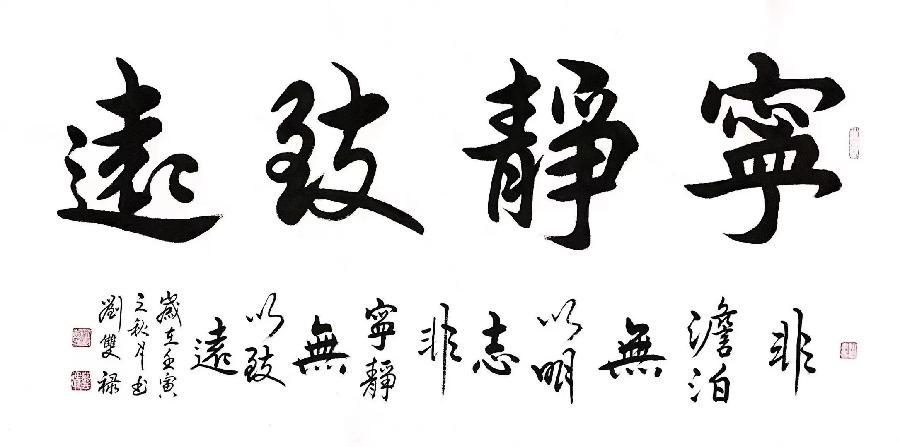 寧靜致遠
非澹泊無以明志非寧靜無以致遠
歲在壬寅
之秋月書
劉雙祿